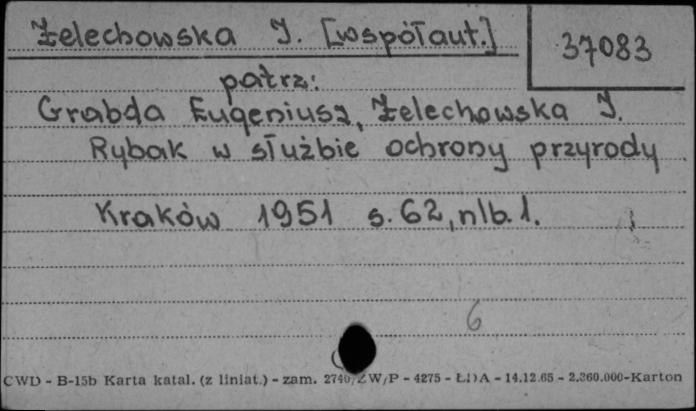 Żelechowska J. [współaut.]
37083
patrz:
Grabda Eugeniusz, Żelechowska J.
Rybak w służbie ochrony przyrody
Kraków 1951 s. 62, nlb. 1.
6
CWD - B-15b Karta katal. (z liniat.) - zam. 2740/ZW/P - 4275 - ŁDA - 14.12.65 - 2.360.000-Karton